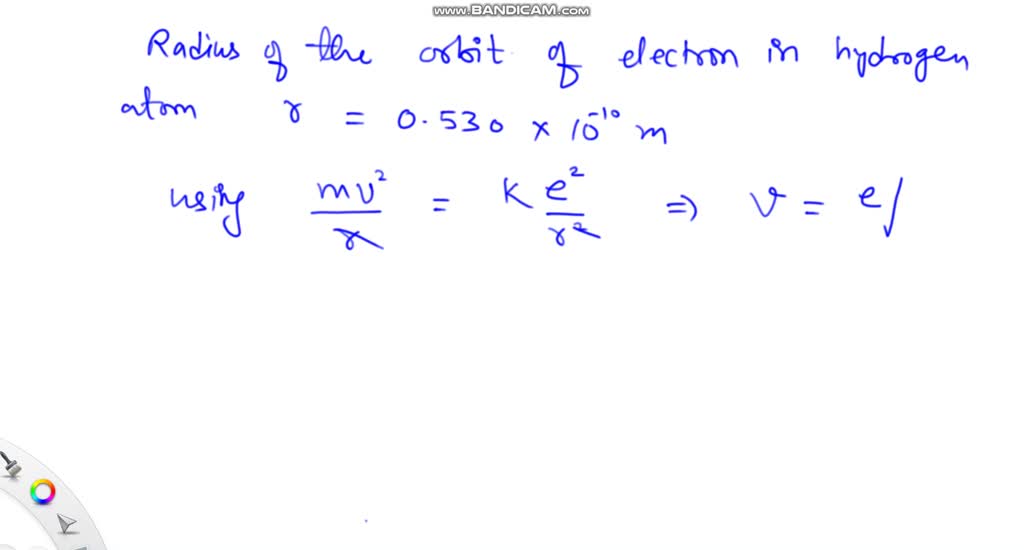 www.BANDICAM.com
Radius of the orbit of electron in hydrogen
atom r = 0.530 × 10⁻¹⁰ m
using mv²/r = K e²/r² ⇒ v = e√